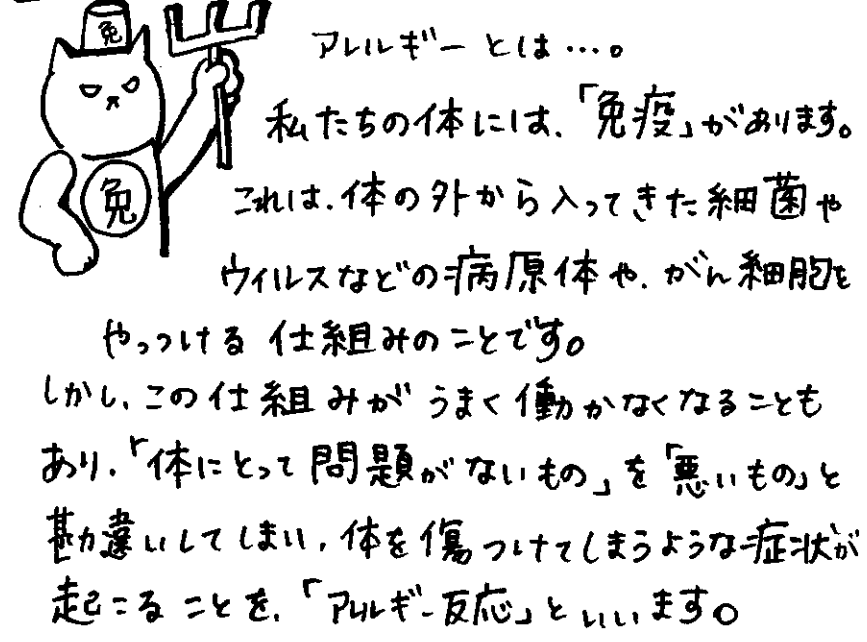 免
免
アレルギーとは…。
私たちの体には、「免疫」があります。
これは、体の外から入ってきた細菌や
ウィルスなどの病原体や、がん細胞を
やっつける仕組みのことです。
しかし、この仕組みがうまく働かなくなることも
あり、「体にとって問題がないもの」を「悪いもの」と
勘違いしてしまい、体を傷つけてしまうような症状が
起こることを、「アレルギー反応」といいます。